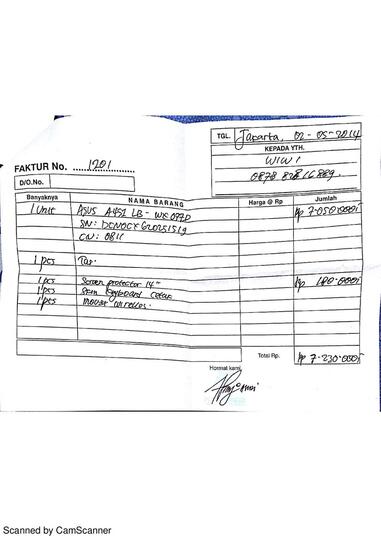 TGL. Jakarta, 02-05-2014
KEPADA YTH.
WIWI
FAKTUR No. 1201
D/O.No.
Banyaknya NAMA BARANG Harga @ Rp Jumlah
1 Unit ASUS A451 LB - WX077D Rp 7.050.000,-
SN:
CN: 0811
1 pcs Tas
1 pcs Screen protector 14" Rp 180.000,-
1 pcs Skin Keyboard
1 pcs Mouse wireless
Total Rp. Rp 7.230.000,-
Hormat kami,
Scanned by CamScanner